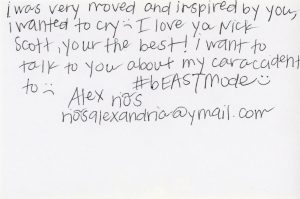 i was very moved and inspired by you,
i wanted to cry :( I love ya Nick
Scott, your the best! i want to
talk to you about my caraccadent
to :( #bEASTMode :)
Alex rios
riosalexandria@ymail.com